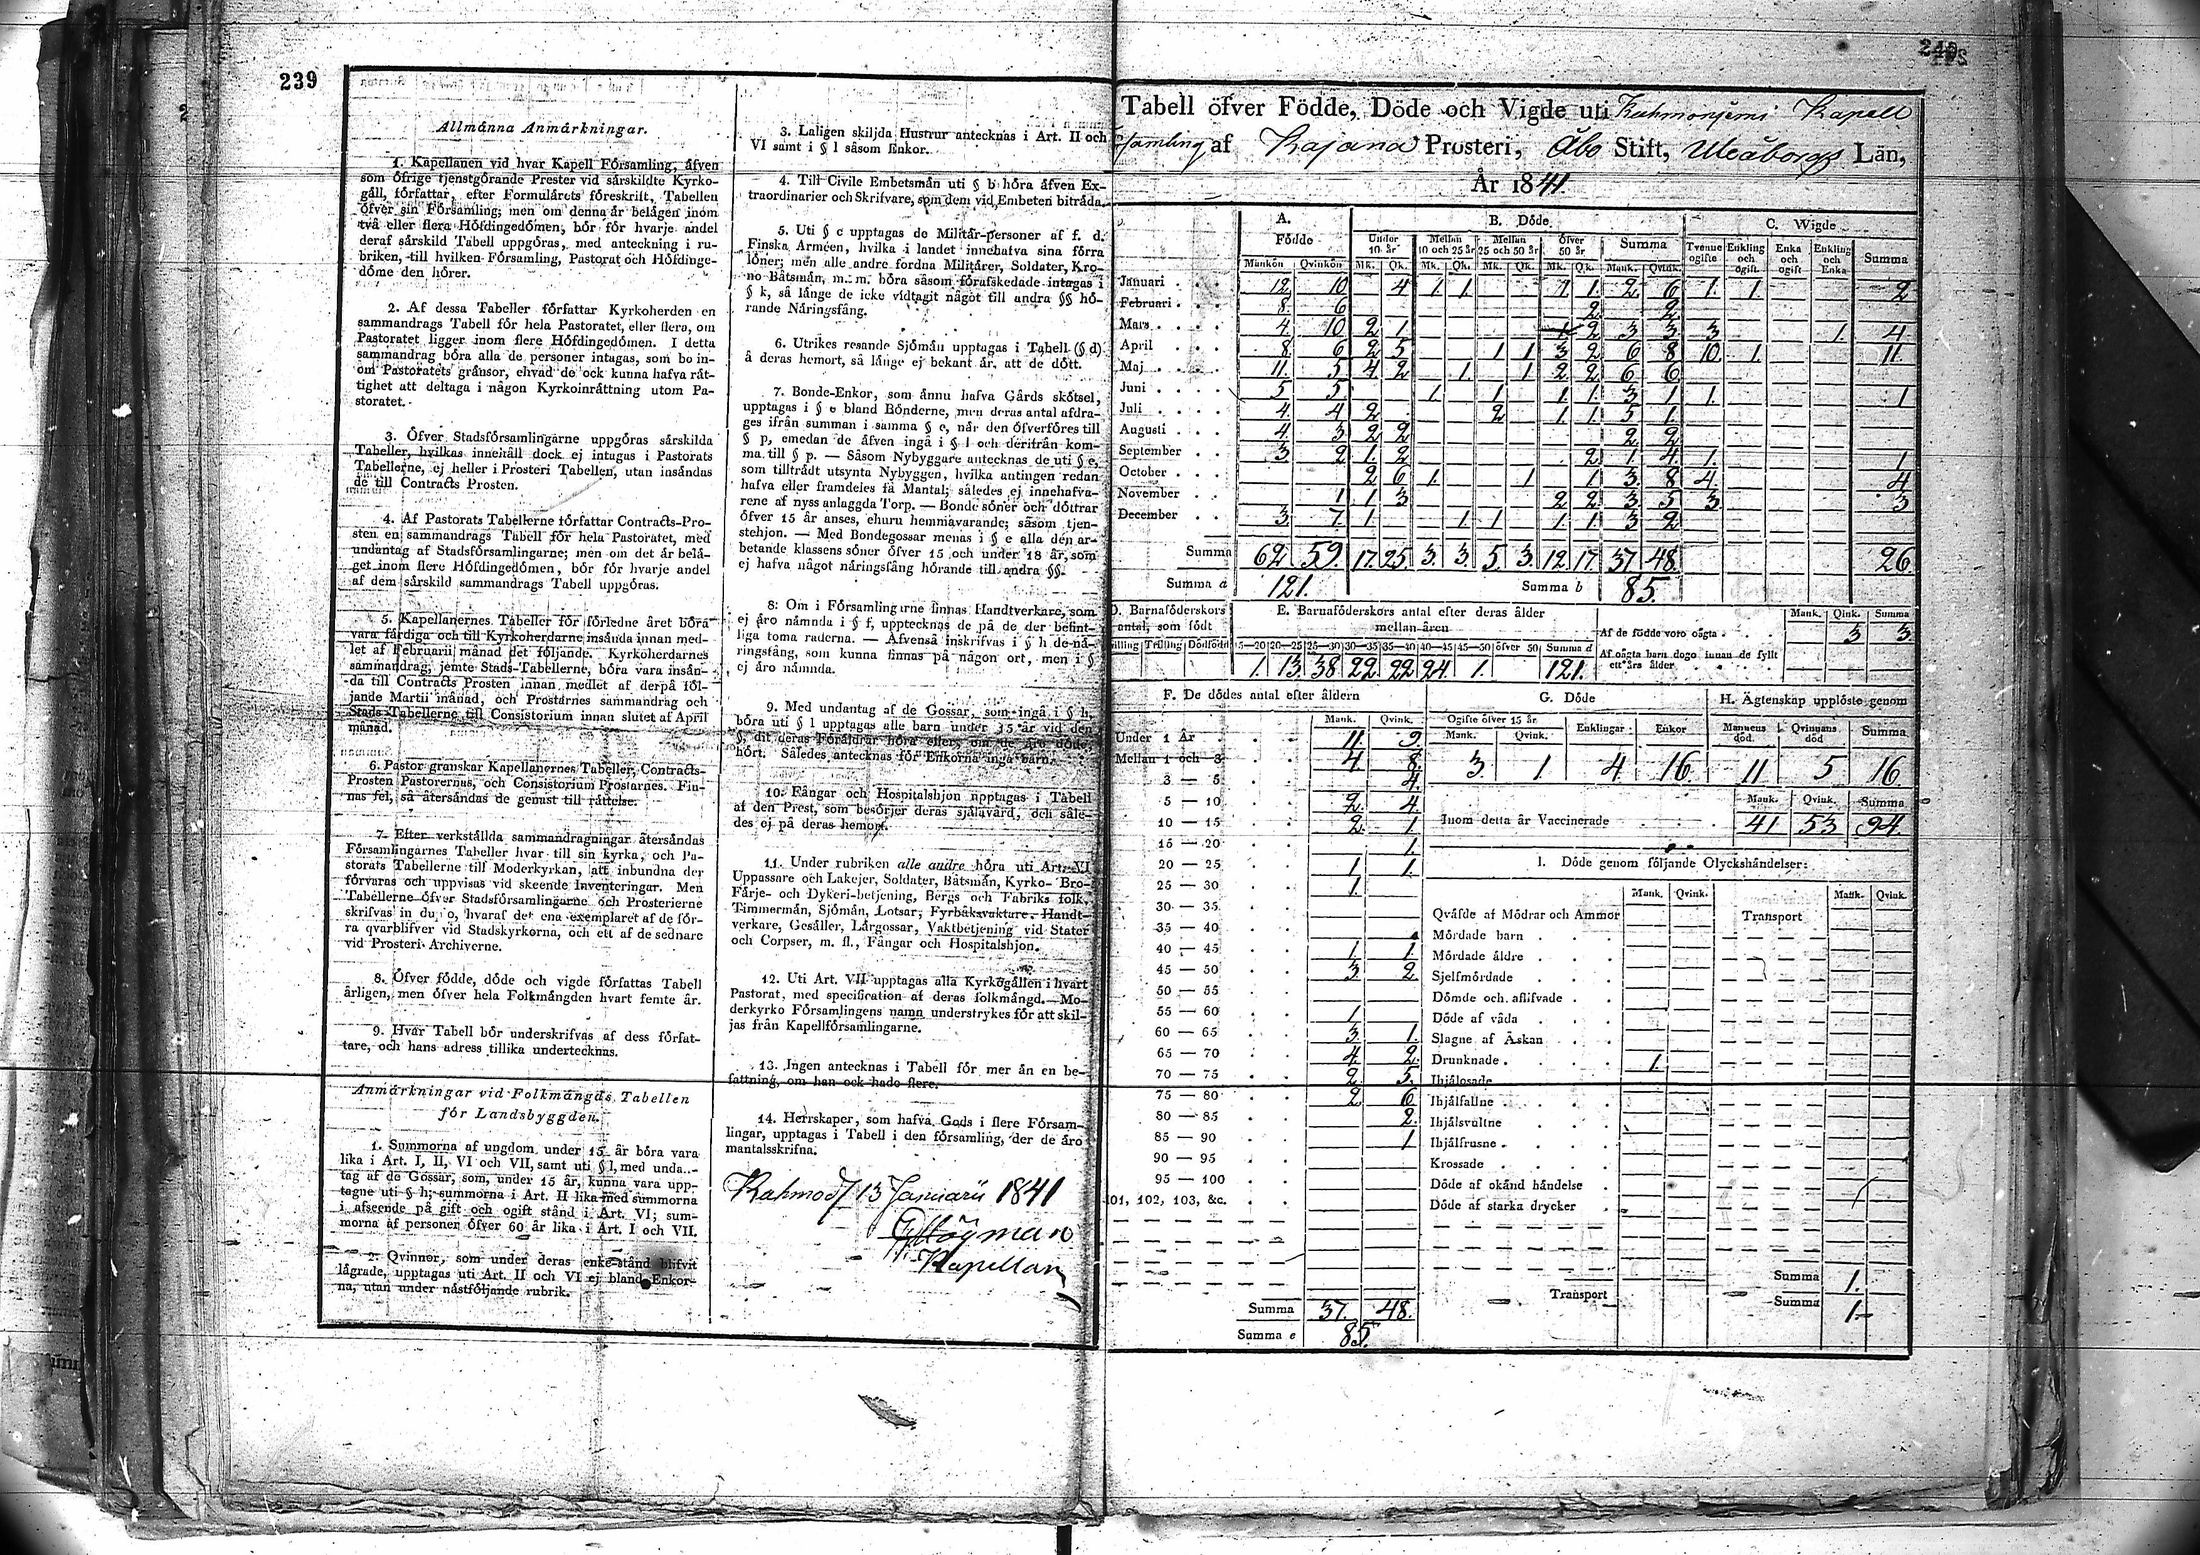 239
Allmånna Anmårkningar.
1. Kapellanen vid hvar Kapell Församling, åfven
som öfrige tjenstgörande Prester vid sårskildte Kyrko-
gåll, författar, efter Formulårets föreskrift, Tabellen
öfver sin Församling; men om denna år belågen inom
två eller flera Höfdingedömen, bör för hvarje andel
deraf sårskild Tabell uppgöras, med anteckning i ru-
briken, till hvilken Församling, Pastorat och Höfdinge-
döme den hörer.
2. Af dessa Tabeller författar Kyrkoherden en
sammandrags Tabell för hela Pastoratet, eller flera, om
Pastoratet ligger inom flere Höfdingedömen. I detta
sammandrag böra alla de personer intagas, som bo in-
om Pastoratets grånsor, ehvad de ock kunna hafva råt-
tighet att deltaga i någon Kyrkoinråttning utom Pa-
storatet.
3. Öfver Stadsförsamlingarne uppgöras sårskilda
Tabeller, hvilkas innehåll dock ej intagas i Pastorats
Tabellerne, ej heller i Prosteri Tabellen, utan insåndas
de till Contracts Prosten.
4. Af Pastorats Tabellerne författar Contracts-Pro-
sten en sammandrags Tabell för hela Pastoratet, med
undantag af Stadsförsamlingarne; men om det år belå-
get inom flere Höfdingedömen, bör för hvarje andel
af dem sårskild sammandrags Tabell uppgöras.
5. Kapellanernes Tabeller för förledne året böra
vara fårdiga och till Kyrkoherdarne insånda innan med-
let af Februarii månad det följande. Kyrkoherdarnes
sammandrag, jemte Stads-Tabellerne, böra vara insån-
da till Contracts Prosten innan medlet af derpå föl-
jande Martii månad, och Prostarnes sammandrag och
Stads-Tabellerne till Consistorium innan slutet af April
månad.
6. Pastor granskar Kapellanernes Tabeller, Contracts-
Prosten Pastorernas, och Consistorium Prostarnes. Fin-
nas fel, så återsåndas de genast till råttelse.
7. Efter verkstållda sammandragningar återsåndas
Församlingarnes Tabeller hvar till sin kyrka, och Pa-
storats Tabellerne till Moderkyrkan, att inbundna der
förvaras och uppvisas vid skeende Inventeringar. Men
Tabellerne öfver Stadsförsamlingarne och Prosterierne
skrifvas in duplo, hvaraf det ena exemplaret af de för-
ra qvarblifver vid Stadskyrkorna, och ett af de sednare
vid Prosteri Archiverne.
8. Öfver födde, döde och vigde författas Tabell
årligen, men öfver hela Folkmångden hvart femte år.
9. Hvar Tabell bör underskrifvas af dess förfat-
tare, och hans adress tillika undertecknas.
Anmårkningar vid Folkmångds Tabellen
för Landsbyggden.
1. Summorna af ungdom under 15 år böra vara
lika i Art. I, II, VI och VII, samt uti § l, med undan-
tag af de Gossar, som, under 15 år, kunna vara upp-
tagne uti § h; summorna i Art. II lika med summorna
i afseende på gift och ogift stånd i Art. VI; sum-
morna af personer öfver 60 år lika i Art. I och VII.
2. Qvinnor, som under deras enke-stånd blifvit
lågrade, upptagas uti Art. II och VI ej bland Enkor-
na, utan under nåstföljande rubrik.
3. Laligen skiljda Hustrur antecknas i Art. II och
VI samt i § l såsom Enkor.
4. Till Civile Embetsmån uti § b höra åfven Ex-
traordinarier och Skrifvare, som dem vid Embeten bitråda.
5. Uti § c upptagas de Militår-personer af f. d.
Finska Armeen, hvilka i landet innehafva sina förra
löner; men alle andre fordna Militårer, Soldater, Kro-
no Båtsmån, m. m. böra såsom förafskedade intagas i
§ k, så långe de icke vidtagit något till andra §§ hö-
rande Nåringsfång.
6. Utrikes resande Sjömån upptagas i Tabell (§ d)
å deras hemort, så långe ej bekant år, att de dött.
7. Bonde-Enkor, som ånnu hafva Gårds skötsel,
upptagas i § e bland Bönderne, men deras antal afdra-
ges ifrån summan i samma § e, når den öfverföres till
§ p, emedan de åfven ingå i § l och derifrån kom-
ma till § p. — Såsom Nybyggare antecknas de uti § e,
som tilltrådt utsynta Nybyggen, hvilka antingen redan
hafva eller framdeles få Mantal; således ej innehafva-
rene af nyss anlaggda Torp. — Bonde söner och döttrar
öfver 15 år anses, ehuru hemmavarande; såsom tjen-
stehjon. — Med Bondegossar menas i § e alla den ar-
betande klassens söner öfver 15 och under 18 år, som
ej hafva något nåringsfång hörande till andra §§.
8: Om i Församlingarne finnas Handtverkare, som
ej åro nåmnda i § f, upptecknas de på de der befint-
liga toma raderna. — Åfvenså inskrifvas i § h de nå-
ringsfång, som kunna finnas på någon ort, men i §
ej åro nåmnda.
9. Med undantag af de Gossar, som ingå i § h,
böra uti § l upptagas alle barn under 15 år vid den
§, dit deras Föråldrar höra eller, om de åro döde,
hört. Således antecknas för Enkorna inga barn.
10. Fångar och Hospitalshjon upptagas i Tabell
af den Prest, som besörjer deras sjålavård, och såle-
des ej på deras hemort.
11. Under rubriken alle andre höra uti Art. VI
Uppassare och Lakejer, Soldater, Båtsmån, Kyrko- Bro-
Fårje- och Dykeri-betjening, Bergs och Fabriks folk,
Timmermån, Sjömån, Lotsar, Fyrbåksvaktare, Handt-
verkare, Gesåller, Lårgossar, Vaktbetjening vid Stater
och Corpser, m. fl., Fångar och Hospitalshjon.
12. Uti Art. VII upptagas alla Kyrkogållen i hvart
Pastorat, med specification af deras folkmångd. — Mo-
derkyrko Församlingens namn understrykes för att skil-
jas från Kapellförsamlingarne.
13. Ingen antecknas i Tabell för mer ån en be-
fattning, om han ock hade flere.
14. Herrskaper, som hafva Gods i flere Försam-
lingar, upptagas i Tabell i den församling, der de åro
mantalsskrifna.
13 Januarii 1841
Högman
Kapellan
Tabell öfver Födde, Döde och Vigde uti Kuhmonjemi Kapell
församling af Kajana Prosteri, Åbo Stift, Uleåborgs Län,
År 1841.
A. Födde B. Döde C. Wigde
Under 10 år Mellan 10 och 25 år Mellan 25 och 50 år Öfver 50 år Summa Tvenne ogifte Enkling och ogift. Enka och ogift Enkling och Enka Summa
Mankön Qvinkön Mk. Qk. Mk. Qk. Mk. Qk. Mk. Qk. Mank. Qvink.
Januari 12 10 4 1. 1. 1 1. 2 6 1. 1. 2
Februari 8. 6 2 2
Mars 4 10 2 1 1 2 3 3 3 1. 4
April 8 6 2 5 1 1 3 2 6 8 10. 1. 11.
Maj 11. 5 4 2 1. 1 2 2 6 6
Juni 5 5 1 1 1 1. 3 1 1. 1
Juli 4. 4 2 2 1 1 5 1
Augusti 4. 3 2 2 2 2
September 3 2 1. 2 2 1. 4 1. 1
October 2 6 1. 1 1 3. 8 4. 4
November 1 1 3 2 2 3 5 3. 3
December 3 7. 1. 1 1 1 1. 3 2
Summa 62 59. 17. 25 3. 3. 5. 3. 12 17. 37 48. 26.
Summa a 121. Summa b 85.
D. Barnaföderskors antal, som födt E. Barnaföderskors antal efter deras ålder mellan åren
Mank. Qink. Summa
Af de födde voro oågta 3 3
Af oågta barn dogo innan de fyllt ett års ålder
Trilling Dödfödd 20—25 25—30 30—35 35—40 40—45 45—50 öfver 50 Summa d
1. 13. 38 22 22 24 1. 121.
F. De dödes antal efter åldern G. Döde H. Ägtenskap upplöste genom
Mank. Qvink. Ogifte öfver 15 år Enklingar Enkor Mannens död. Qvinnans död Summa
Mank. Qvink.
3. 1 4 16. 11 5 16
Mank. Qvink. Summa
Inom detta år Vaccinerade 41 53 94.
Under 1 År 11 9
Mellan 1 och 3 4 8.
3 — 5 4.
5 — 10 2. 4.
10 — 15 2. 1.
15 — 20 1.
20 — 25 1 1.
25 — 30 1.
30 — 35
35 — 40
40 — 45 1 1.
45 — 50 3. 2.
50 — 55
55 — 60 1
60 — 65 3. 1.
65 — 70 4. 2.
70 — 75 2 5.
75 — 80 2 6
80 — 85 2.
85 — 90 1
90 — 95
95 — 100
101, 102, 103, &c.
Summa 37. 48.
Summa e 85.
I. Döde genom följande Olyckshåndelser:
Mank. Qvink. Mank. Qvink.
Qvåfde af Mödrar och Ammor Transport
Mördade barn
Mördade åldre
Sjelfmördade
Dömde och aflifvade
Döde af våda
Slagne af Åskan
Drunknade 1.
Ihjålosade
Ihjålfallne
Ihjålsvultne
Ihjålfrusne
Krossade
Döde af okånd håndelse
Döde af starka drycker
Summa 1.
Transport Summa 1.